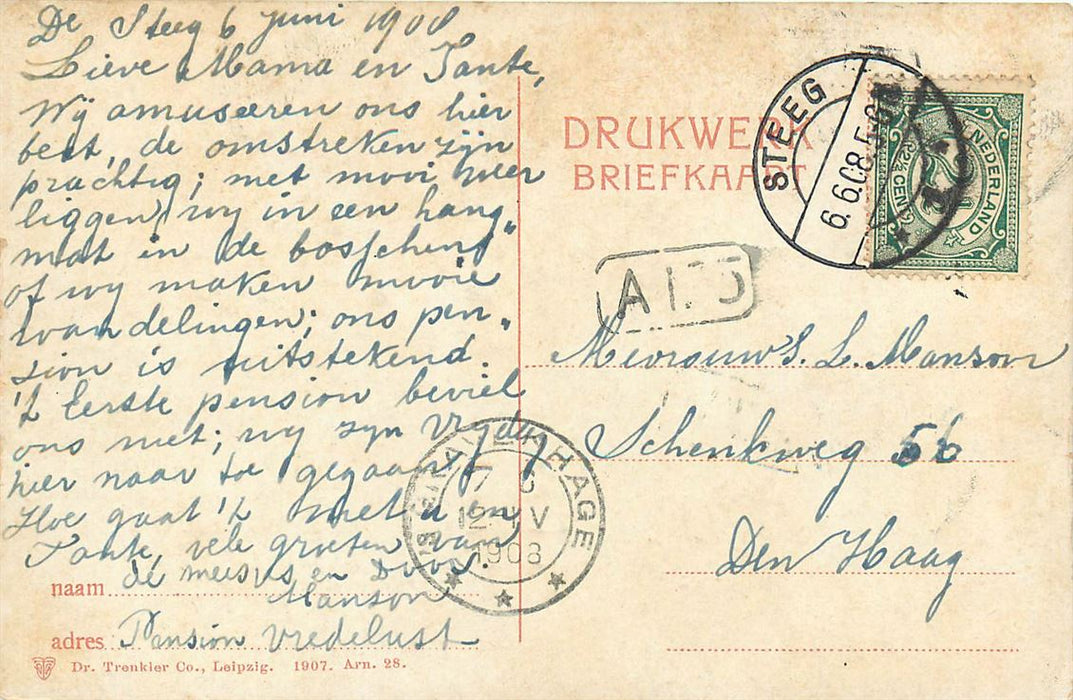 De Steeg 6 Juni 1908
Lieve Mama en Tante,
Wij amuseeren ons hier
best, de omstreken zijn
prachtig; met mooi weer
liggen wy in een hang„
mat in de bosschen
of wy maken mooie
wandelingen; ons pen„
sion is uitstekend.
't Eerste pension beviel
ons niet; wy zyn Vrydag
hier naar toe gegaan,
Hoe gaat 't met u en
Tante, vele groeten van
de meisjes en Door.
Manson
naam
adres Pension Vredelust
Dr. Trenkler Co., Leipzig. 1907. Arn. 28.
DRUKWERK
BRIEFKAART
STEEG
6.6.08.5-6
NEDERLAND
2½ CENT
Mevrouw S. L. Manson
Schenkweg 56
Den Haag
'S GRAVENHAGE
12-4V
1908